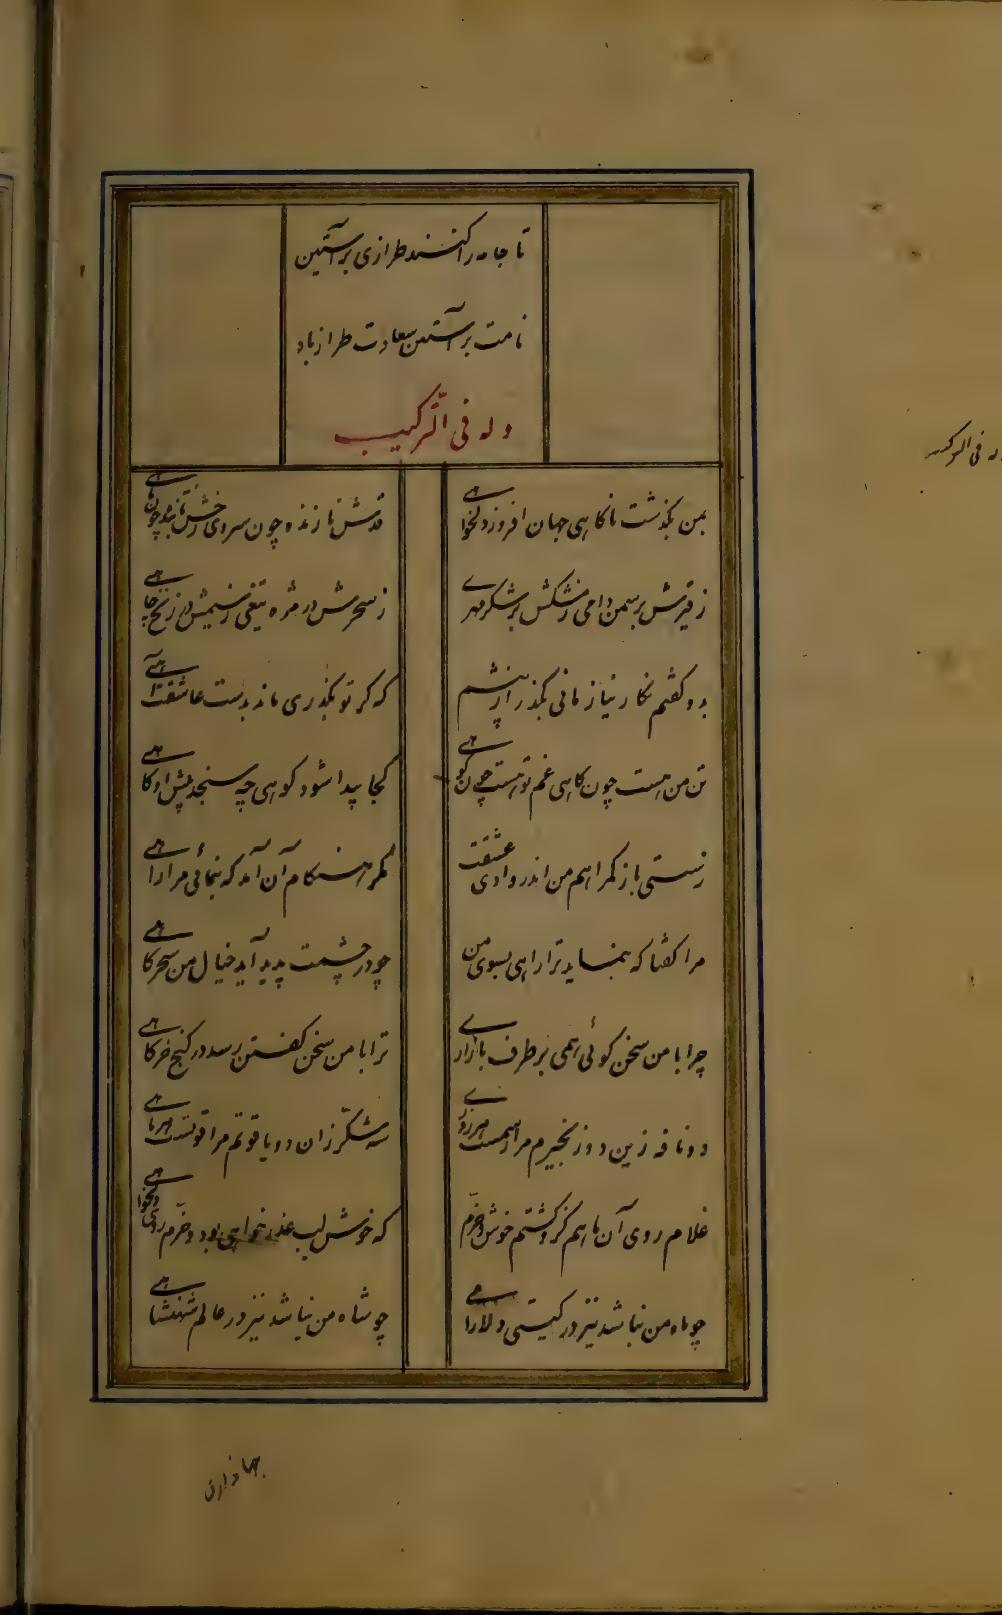 تا جامه را کنند طرازی بر آستین
نامت بر آستین سعادت طراز باد
وله فی الترکیب
وله فی الترکیب
بمن بگذشت ناکاهی جهان افروز دلخواهی
قدش نازنده چون سروی رخش تابنده چون ماهی
ز قیرش بر سمن دامی ز مشکش بر شکر مهری
ز سحرش در مژه تیغی ز سیمش در زنخ چاهی
بدو کفتم نکارینا زمانی بکذر از پیشم
که کر تو بکذری ماند بدست عاشقت آهی
تن من هست چون کاهی غم تو هست چون کوهی
کجا پیدا شود کوهی چه سنجد پیش او کاهی
ز مستی باز کمراهم من اندر وادی عشقت
مکر هنکام آن آمد که بنمائی مرا راهی
مرا کفتا که بنماید ترا راهی بسوی من
چو در چشمت پدید آید خیال من سحرکاهی
چرا با من سخن کوئی همی بر طرف بازاری
ترا با من سخن کفتن رسد در کنج خرکاهی
دو نافه زین دو زنجیرم مرا رسمست هر روزی
سه شکر زان دو یاقوتم مرا قوتست هر ماهی
غلام روی آن ماهم کزو کشتم خوش و خرم
که خوش لب عذرخواهی بود و خرم روی دلخواهی
چو ماه من نباشد نیز در کیتی دلارامی
چو شاه من نباشد نیز در عالم شهنشاهی
جهانداری